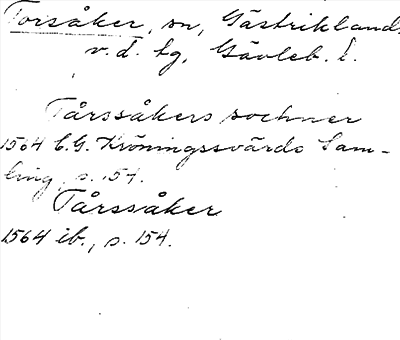 Torsåker, sn, Gästriklands
v. d. tg, Gävleb. l.
Tårssåkers sochner
1564 C. G. Kröningssvärds Sam-
ling, s. 154.
Tårssåker
1564 ib., s. 154.